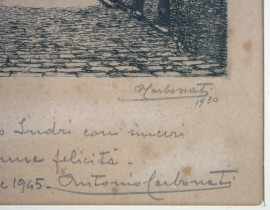 Carbonati
1930
Indri con sinceri
felicità -
1945 - Antonio Carbonati